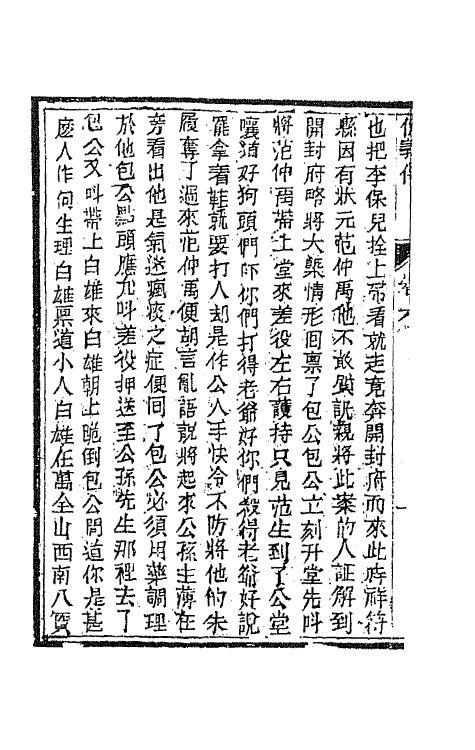 俠義傳 卷六
也把李保兒拴上帶看就走竟奔開封府而來此時祥符
縣因有狀元范仲禹他不敢質訊親將此案的人証解到
開封府略將大槩情形囬禀了包公包公立刻升堂先呌
將范仲禹帶上堂來差役左右護持只見范生到了公堂
嚷道好狗頭們吓你們打得老爺好你們殺得老爺好說
罷拿着鞋就要打人却是作公人手快冷不防將他的朱
履奪了過來范仲禹便胡言亂語說將起來公孫主簿在
旁看出他是氣迷瘋痰之症便囬了包公必須用藥調理
於他包公點頭應允呌差役押送至公孫先生那裡去了
包公又呌帶上白雄來白雄朝上跪倒包公問道你是甚
麼人作何生理白雄禀道小人白雄在萬全山西南八寶